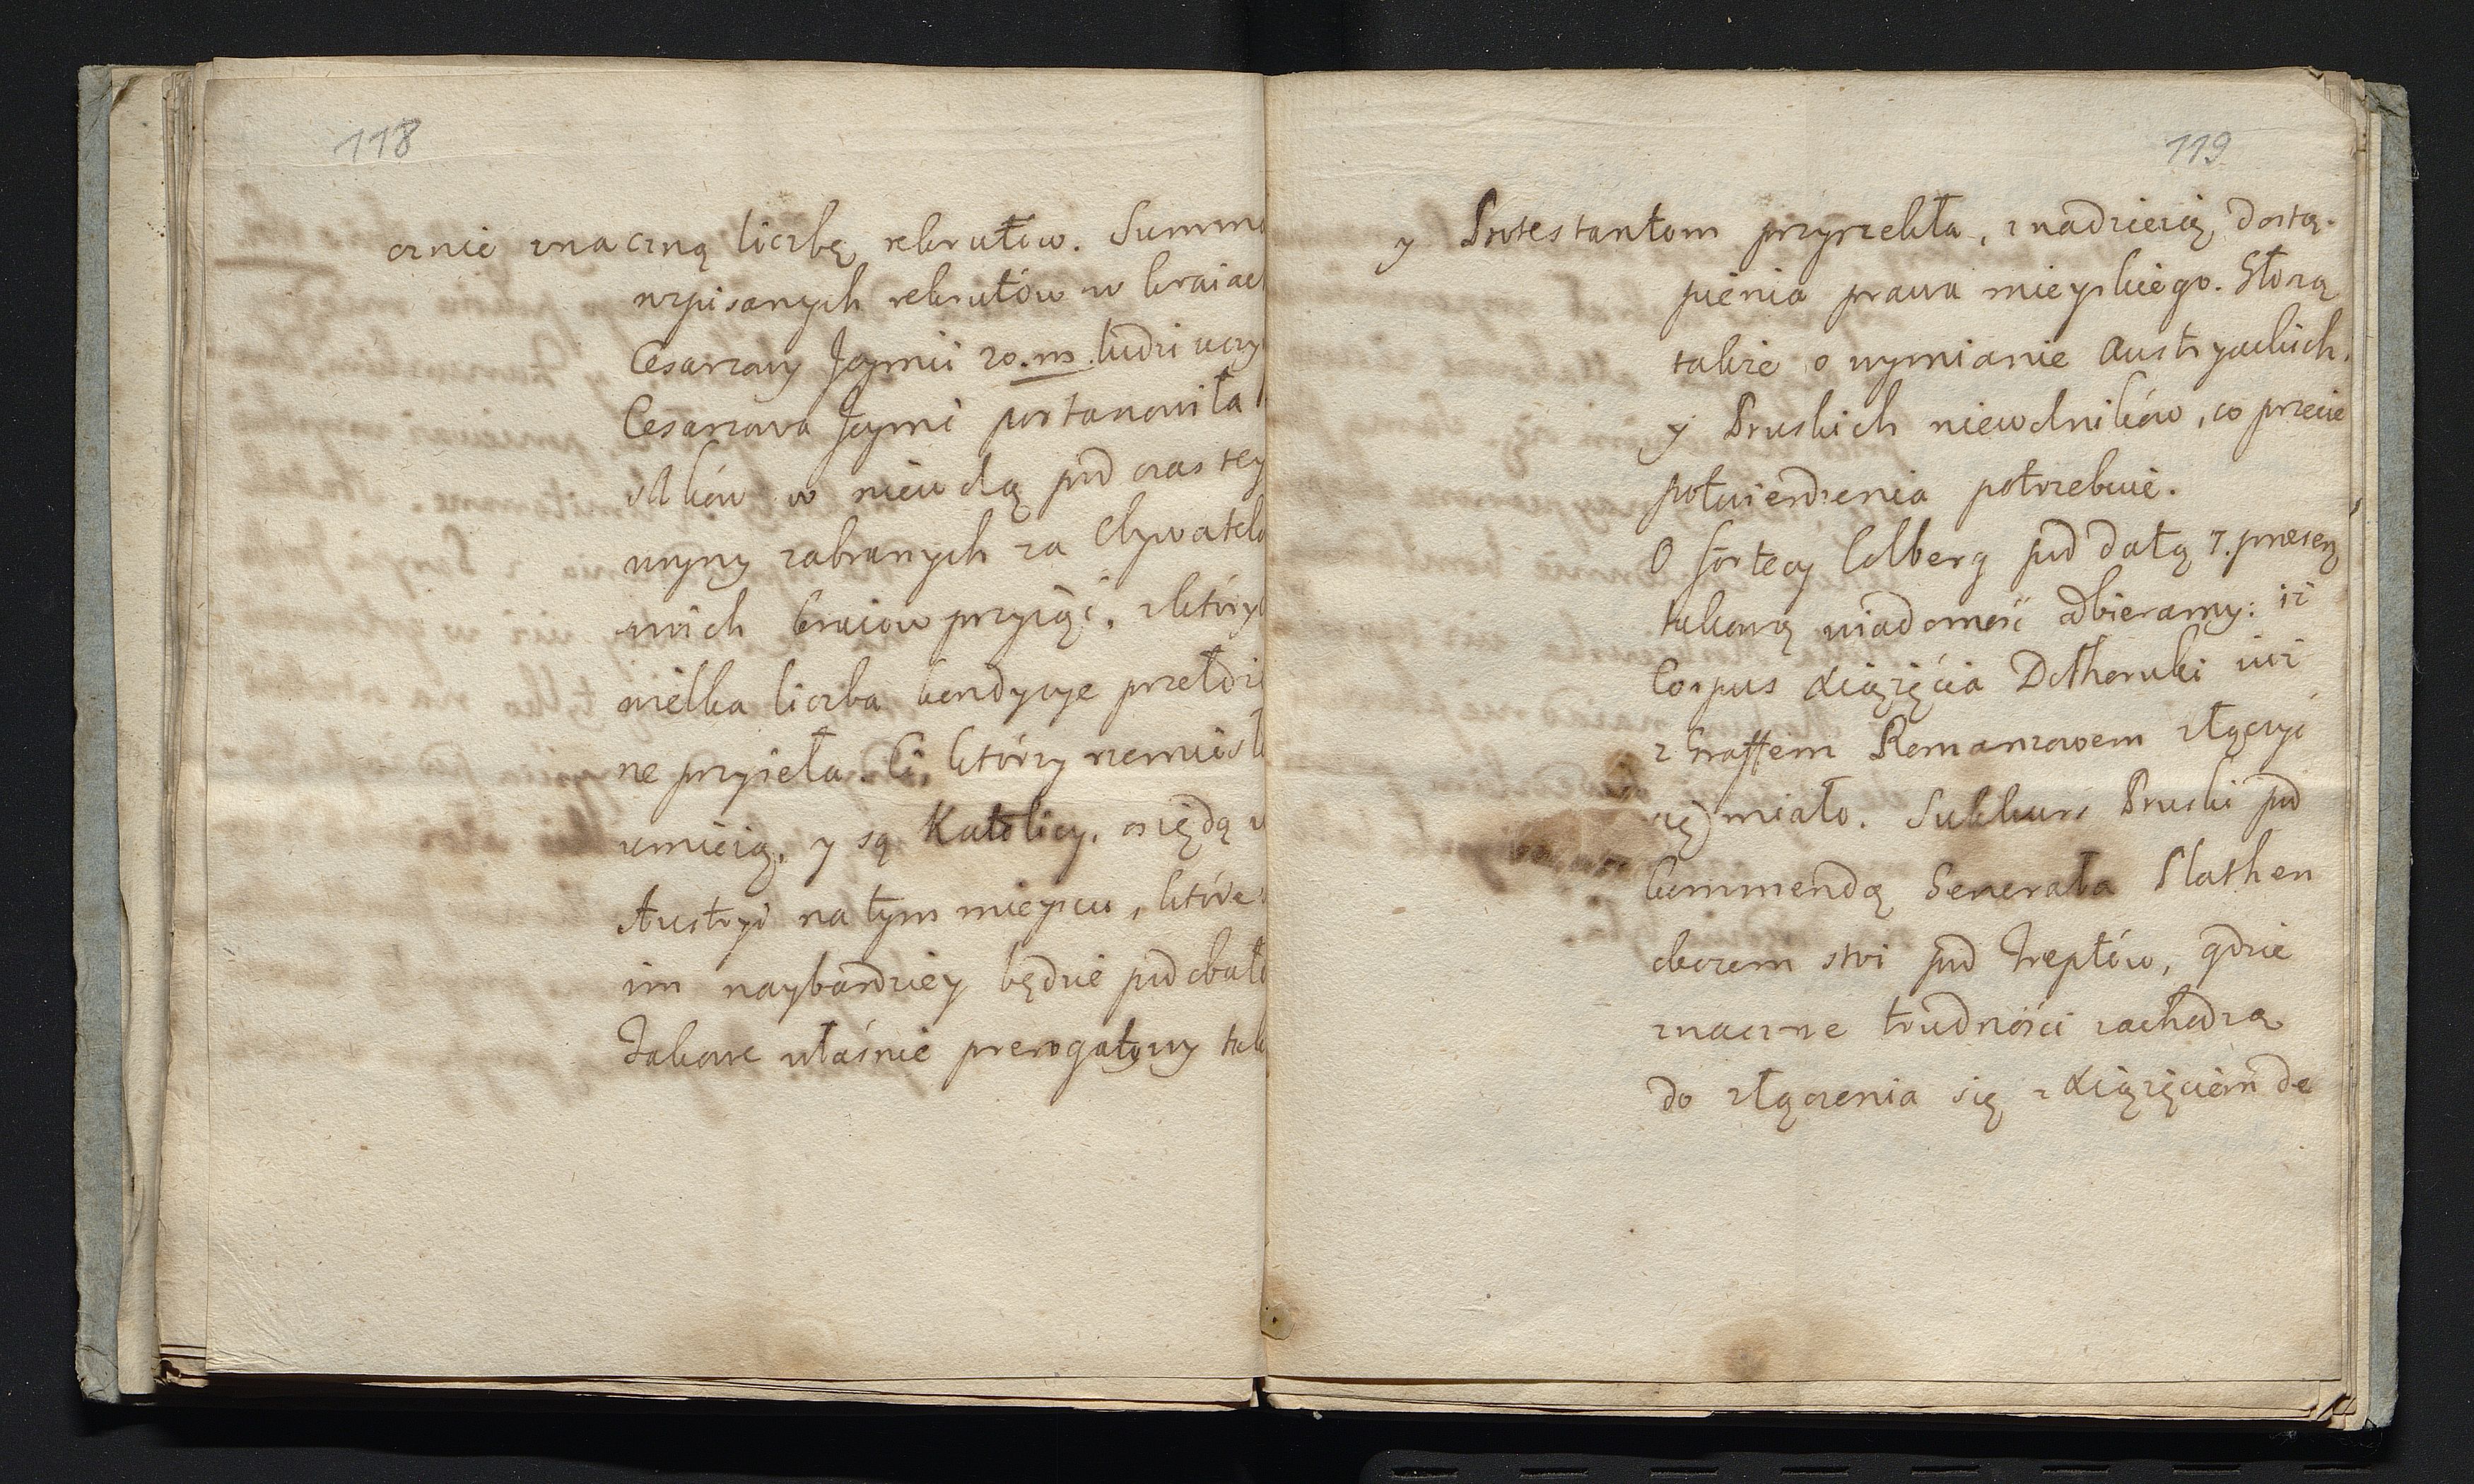 118
cznie znaczną liczbę rekrutow. Summa
wpisanych rekrutów w kraiach
Cesarzowy Jeymci 20.m. ludzi uczy
Cesarzowa Jeymć postanowiła
słkow w niewolą pod czas tey
woyny zabranych za Obywatelo
swich kraiow przyiąć, z który
wielka liczba kondycye przełoż
ne przyieła. Ci którzy rzemiosł
umieią, y są Katolicy, osiędą w
Austryi na tym mieyscu, które
im naybardziey będzie podobało
Takowe właśnie prerogatywy tak
119
y Protestantom przyrzekła, z nadzieią dostą-
pienia prawa mieyskiego. Głoszą
także o wymianie Austryackich
y Pruskich niewolników, co przecie
potwierdzenia potrzebuie.
O fortecy Colberg pod datą 7. praesen
takową wiadomość odbieramy: iż
Corpus Xiążęcia Dolhoruki iuż
z Graffem Romanzowem złączyć
się miało. Sukkurs Pruski pod
kommendą Generała Plathen
obozem stoi pod Treptów, gdzie
znaczne trudności zachodzą
do złączenia się z Xiążęciem de